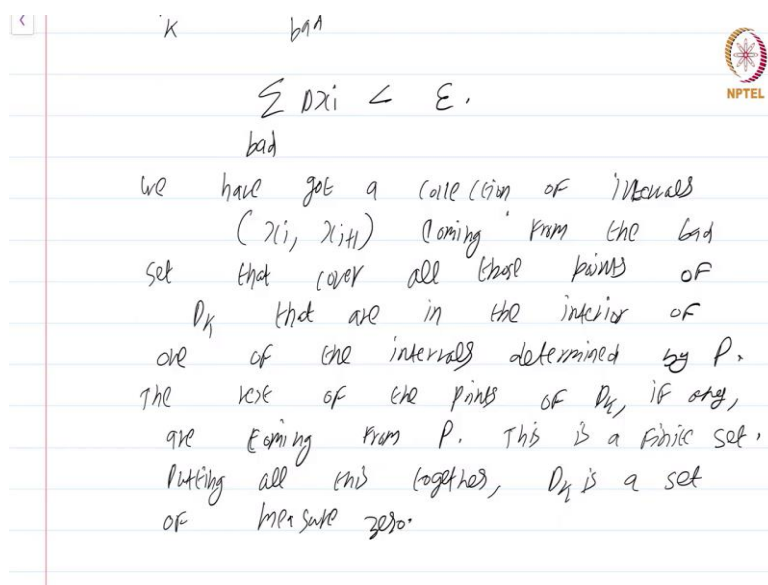 K bad
NPTEL
∑ Dxi < ε.
bad
we have got a collection of intervals
(xi, xi+1) coming from the bad
set that cover all those points of
DK that are in the interior of
one of the intervals determined by P.
The rest of the points of DK, if any,
are coming from P. This is a finite set.
Putting all this together, DK is a set
of measure zero.